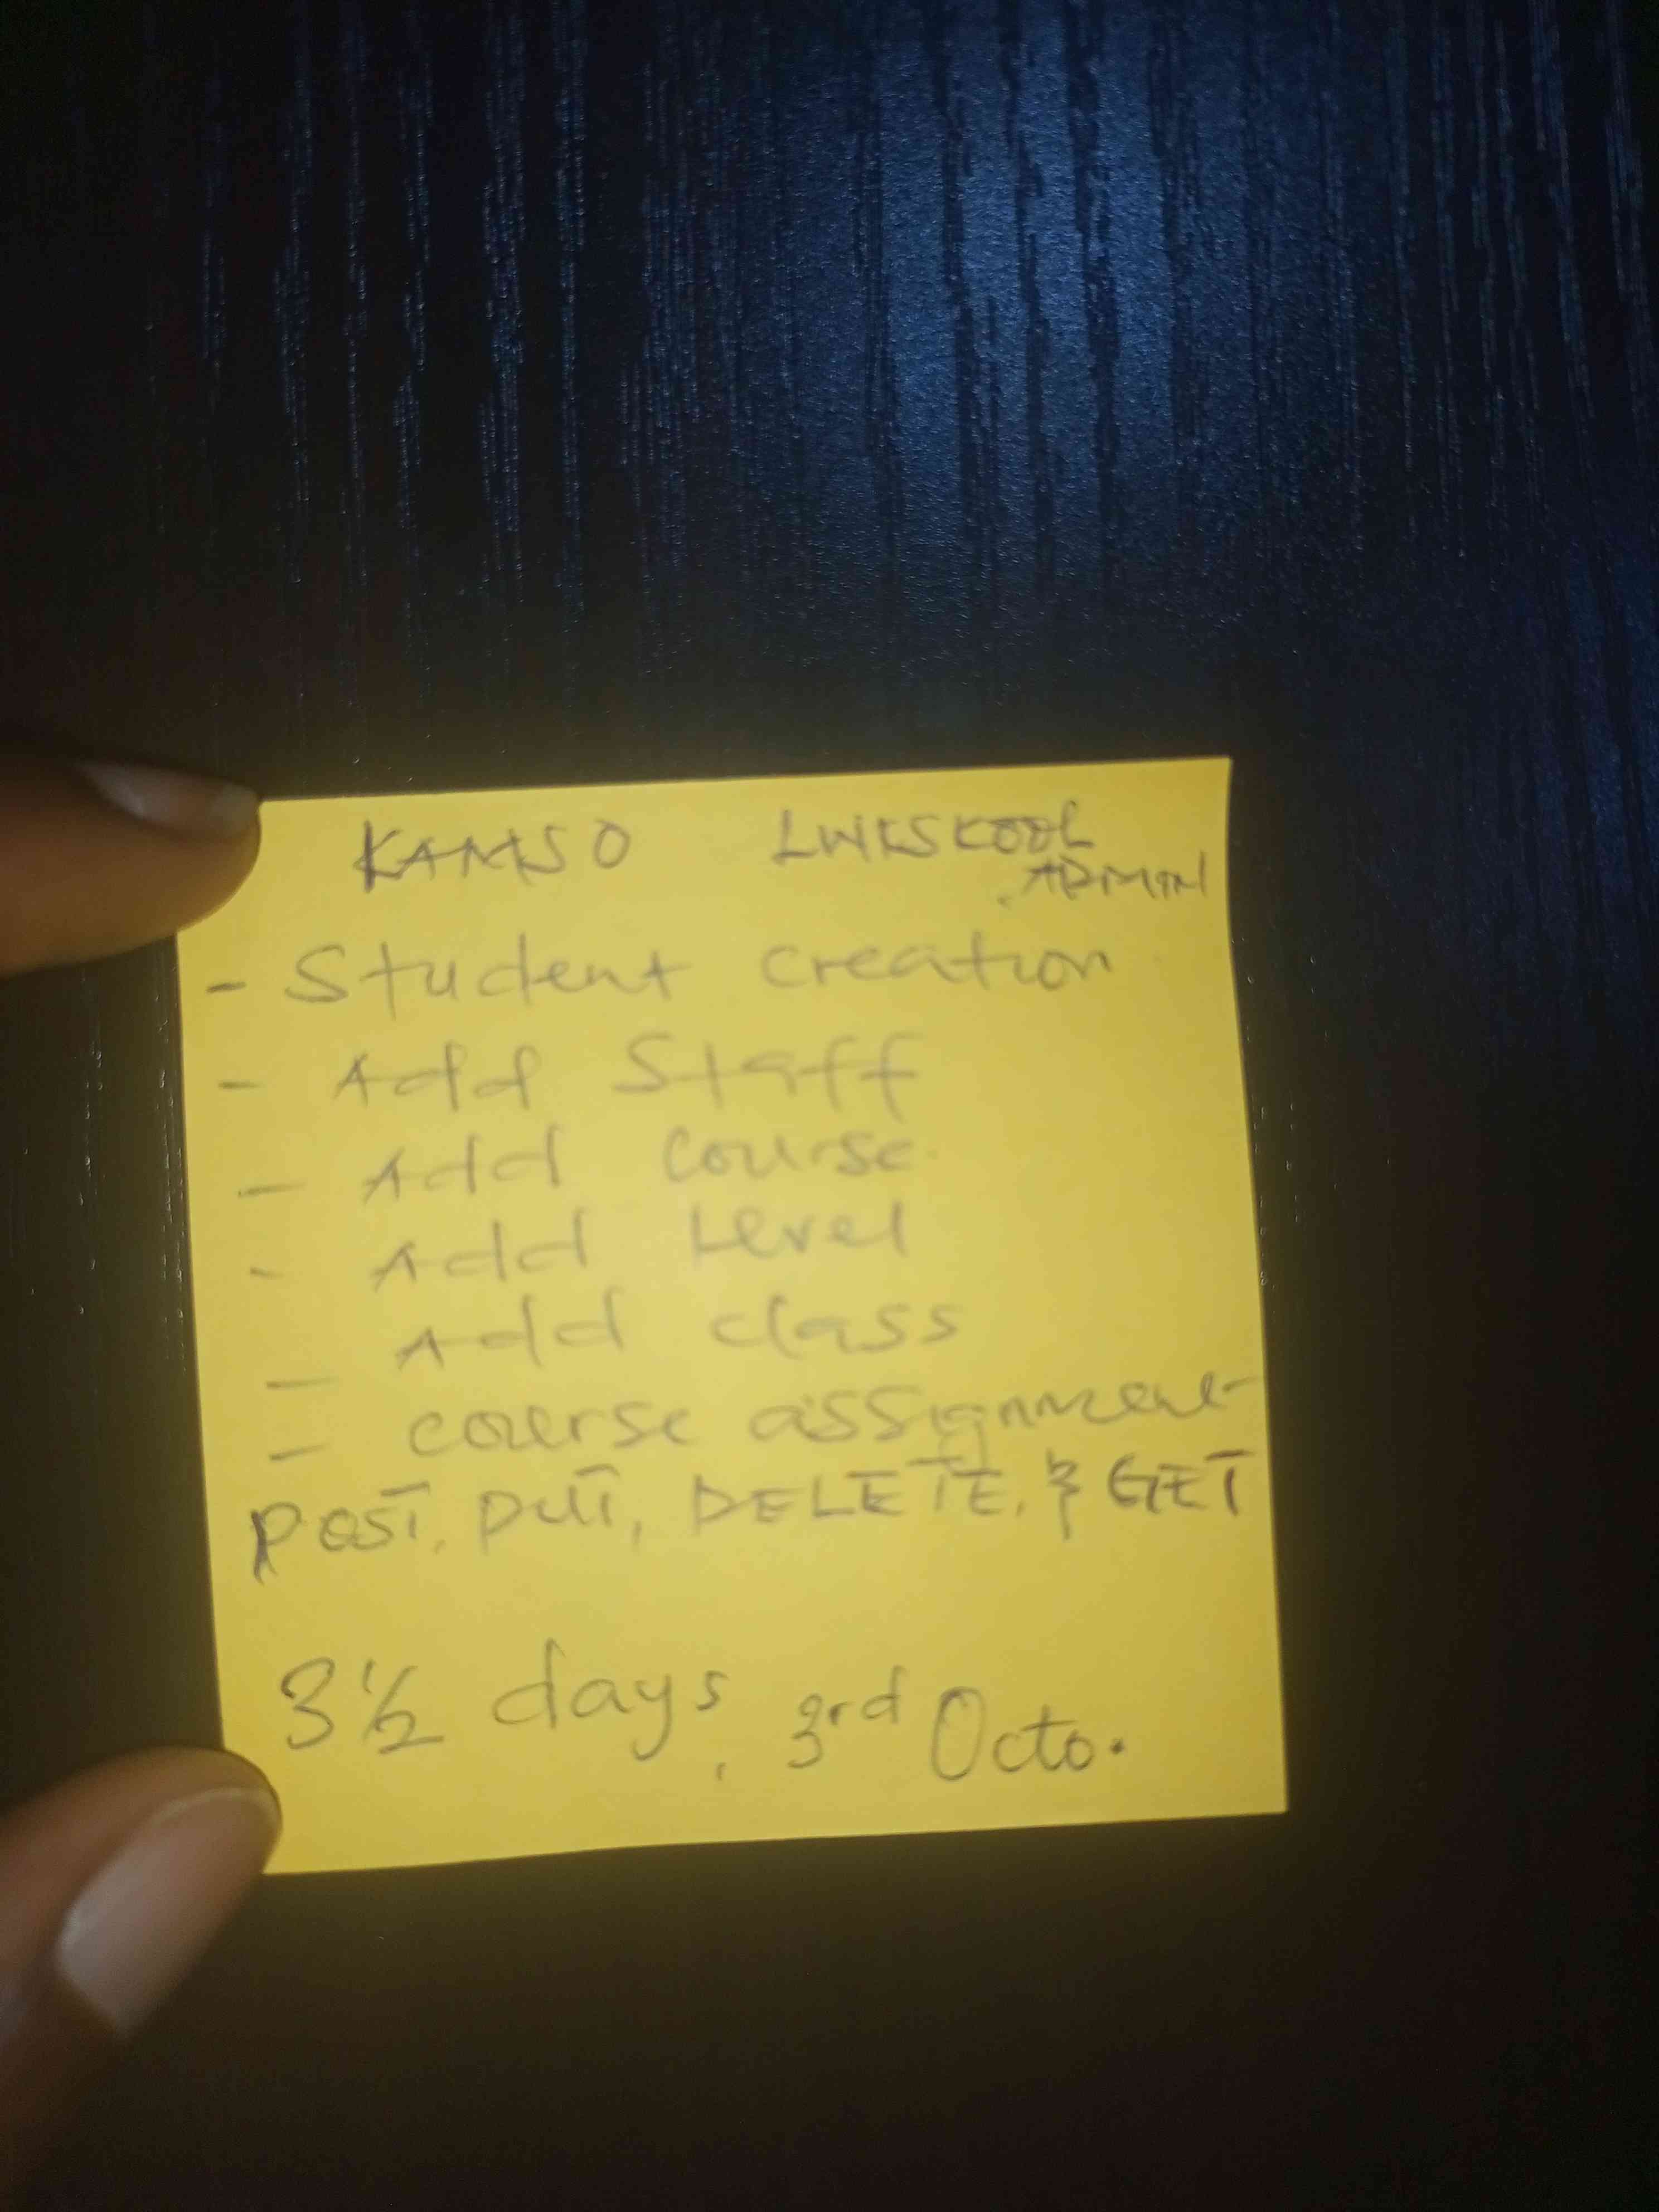 KAMSO LWKSKOOL
ADMIN
- Student creation
- Add Staff
- Add course
- Add Level
- Add class
- course assignment
POST, PUT, DELETE, & GET
3 1/2 days, 3rd Octo.